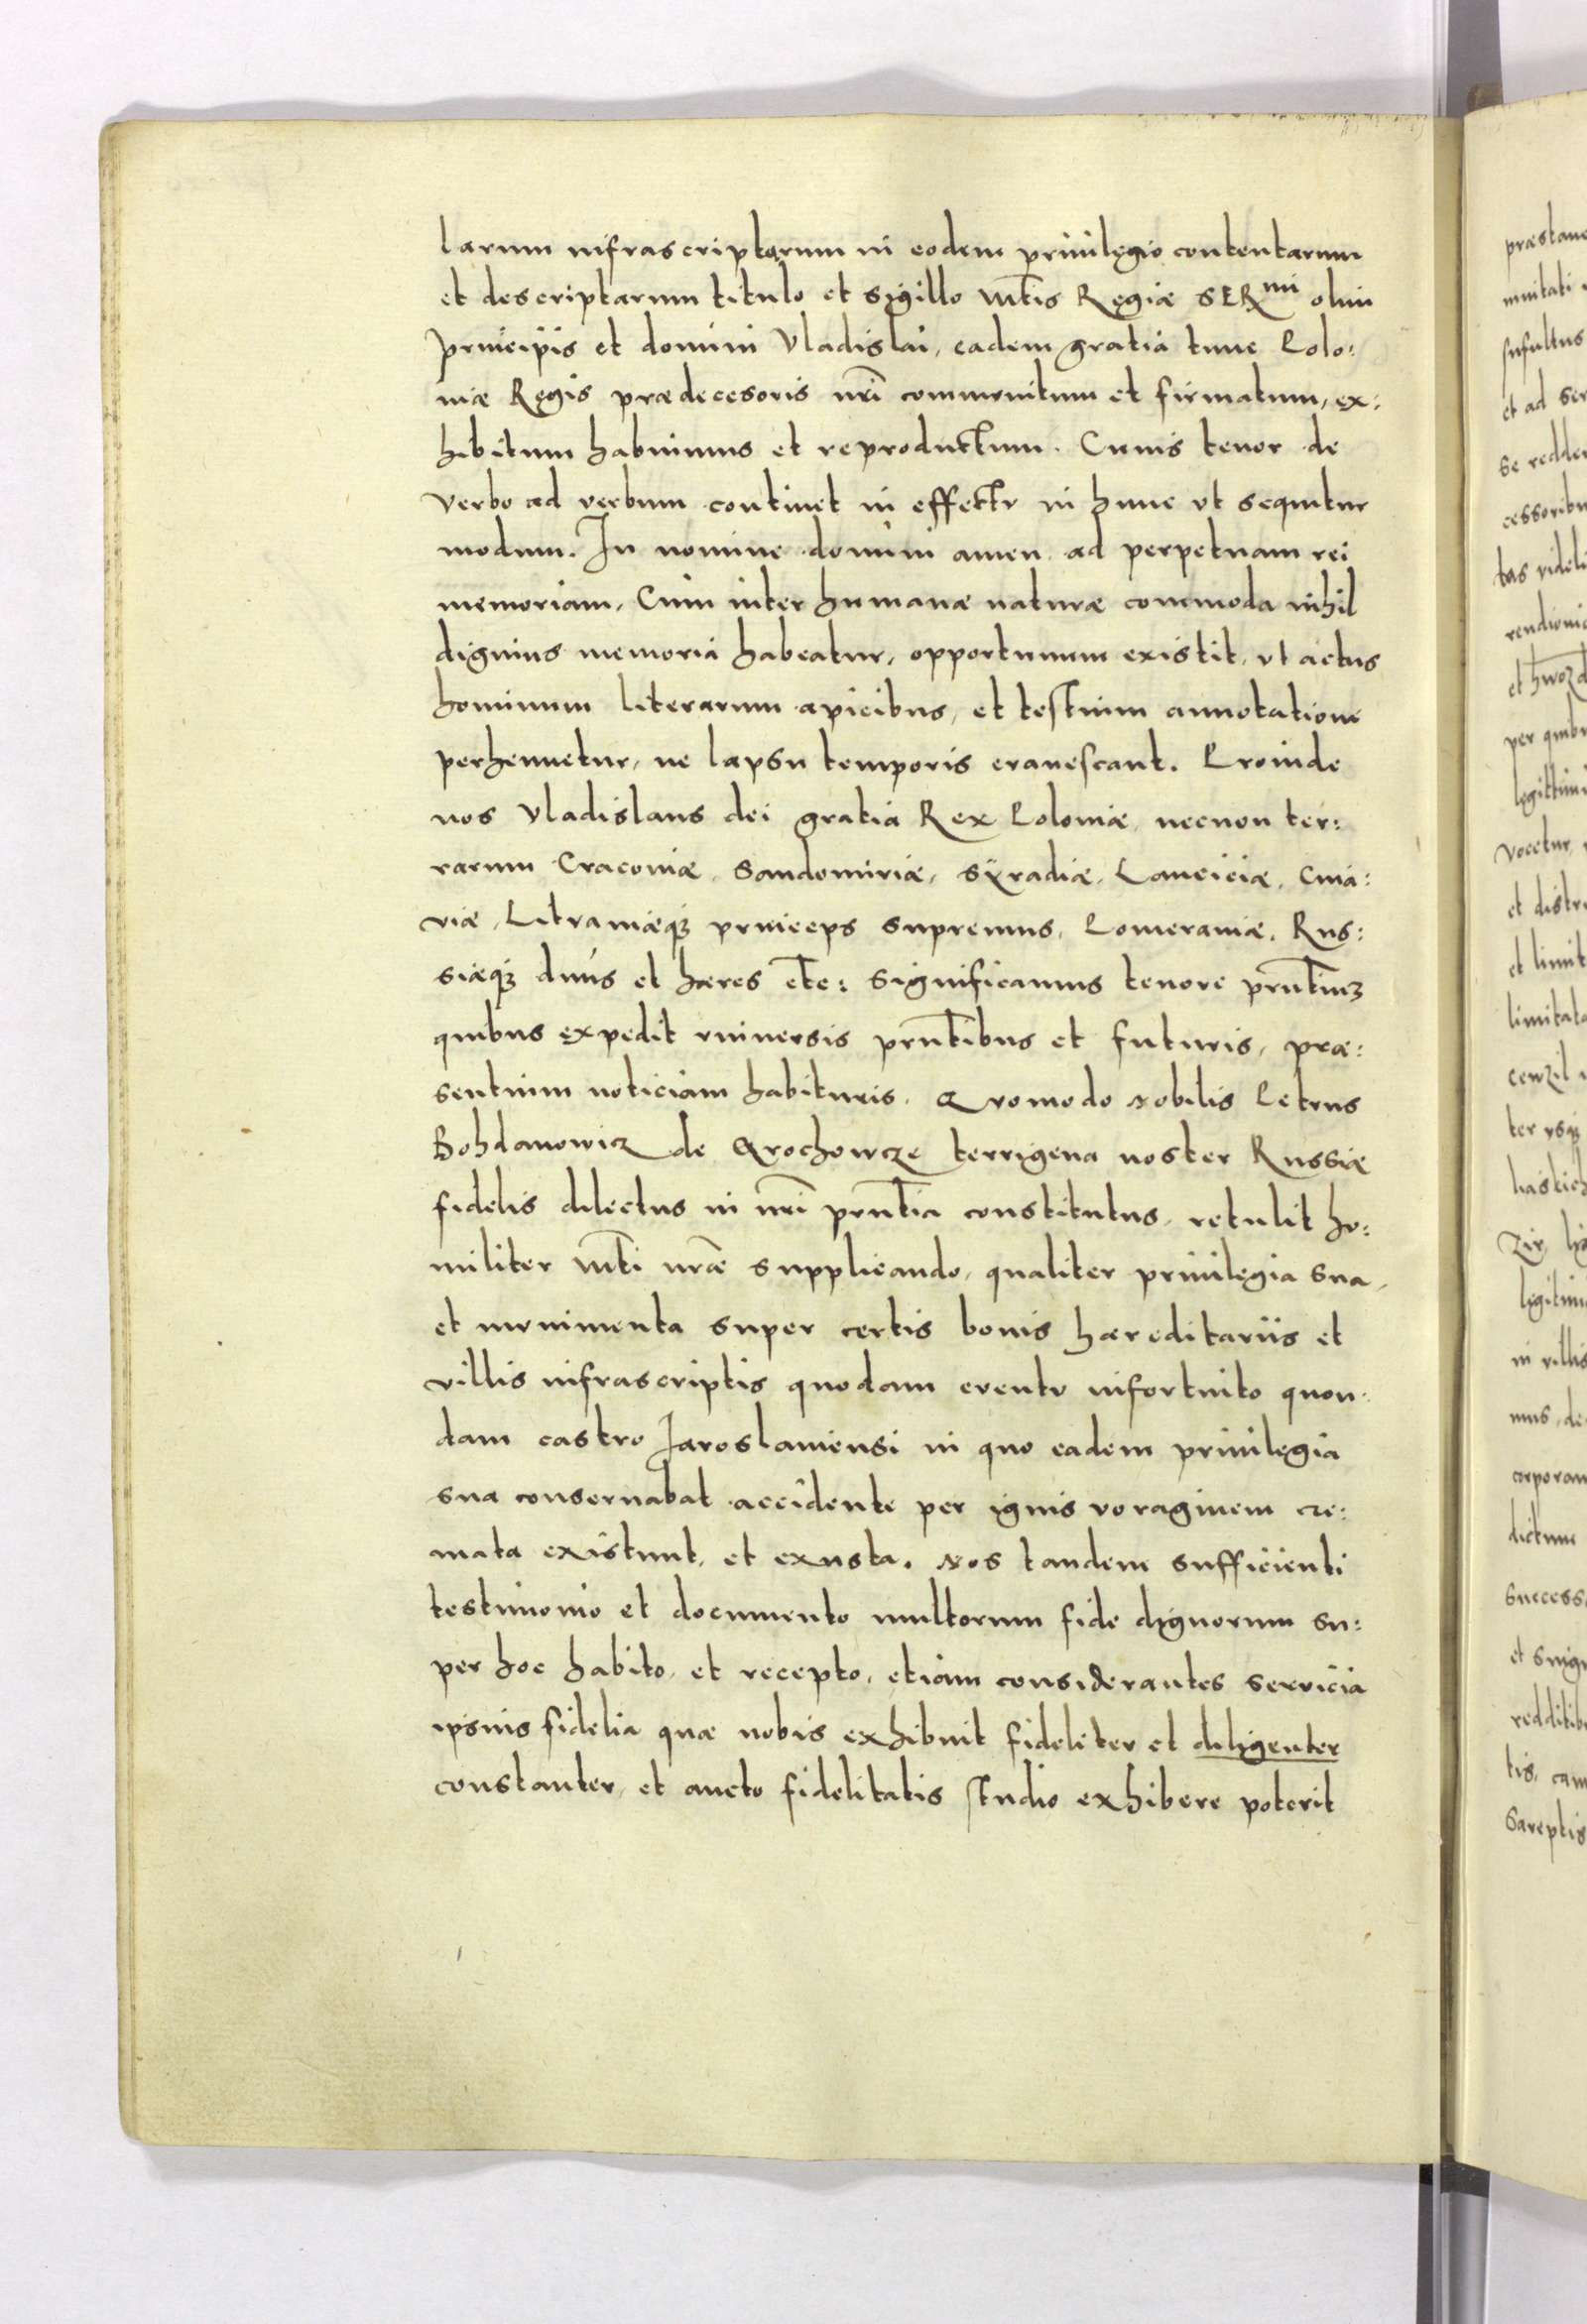 larum infrascriptarum in eodem priuilegio contentarum
et descriptarum titulo et sigillo Mtis Regiæ SERmi olim
principis et domini Vladislai, eadem gratia tunc Polo:
niæ Regis prædecesoris nri communitum et firmatum, ex:
hibitum habuimus et reproductum. Cuius tenor de
verbo ad verbum continet in effectu in hunc vt sequitur
modum. In nomine domini amen ad perpetuam rei
memoriam, Cum inter humanæ naturæ commoda nihil
dignius memoria habeatur, opportunum existit, vt actus
hominum literarum apicibus, et testium annotatione
perhennetur, ne lapsu temporis evanescant. Proinde
nos Vladislaus dei gratia Rex Poloniæ, necnon ter:
rarum Cracoviæ, Sandomiriæ, Syradiæ, Lanciciæ, Cuia:
viæ, Lituaniæq; princeps supremus, Pomeraniæ, Rus:
siæq; dnus et hæres etc: significamus tenore prntium
quibus expedit vniversis prntibus et futuris, præ:
sentium noticiam habituris. Quomodo Nobilis Petrus
Bohdanowicz de Qrochowcze terrigena noster Russiæ
fidelis dilectus in nri prntia constitutus, retulit hu:
militer Mti nræ supplicando, qualiter priuilegia sua,
et munimenta super certis bonis hæreditariis et
villis infrascriptis quodam eventu infortuito quon:
dam castro Jaroslauiensi in quo eadem priuilegia
sua conseruabat accidente per ignis voraginem cre:
mata existunt, et exusta. Nos tandem sufficienti
testimonio et documento multorum fide dignorum su:
per hoc habito, et recepto, etiam considerantes servicia
ipsius fidelia quæ nobis exhibuit fideliter et diligenter
constanter, et aucto fidelitatis studio exhibere poterit